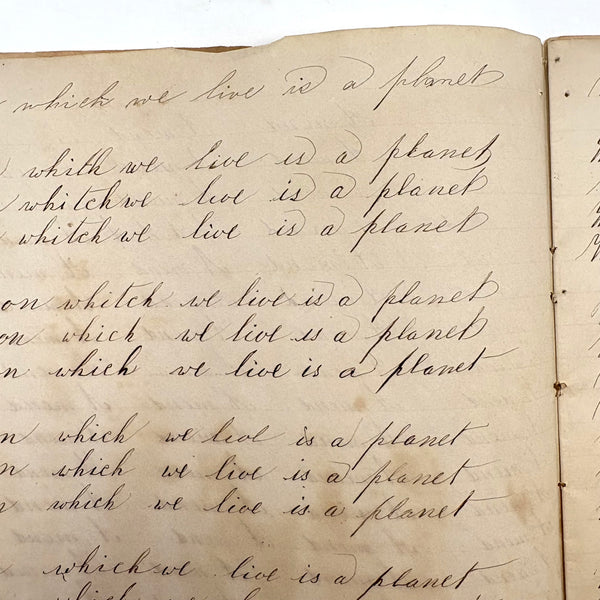 which we live is a planet
whith we live is a planet
whitch we live is a planet
whitch we live is a planet
on whitch we live is a planet
on which we live is a planet
n which we live is a planet
n which we live is a planet
n which we live is a planet
which we live is a planet
which we live is a planet
which we live